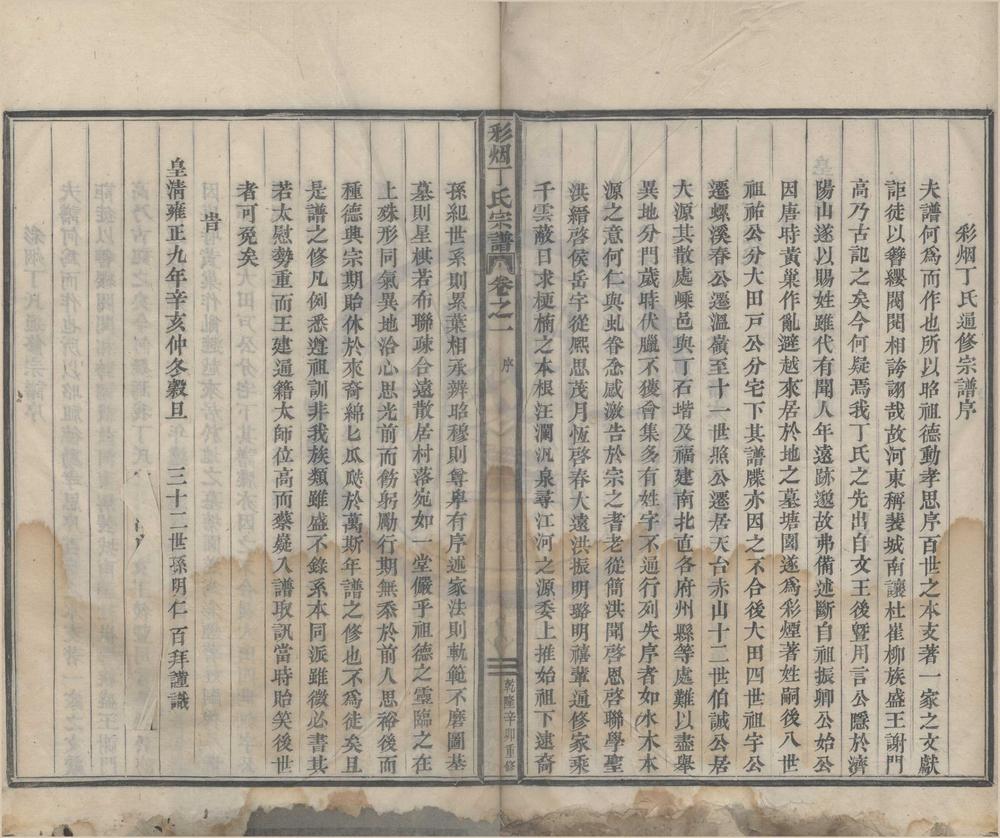 彩烟丁氏通修宗譜序
夫譜何爲而作也所以昭祖德動孝思序百世之本支著一家之文獻
詎徒以簪纓閥閱相誇詡哉故河東稱裴城南讓杜崔柳族盛王謝門
高乃古記之矣今何疑焉我丁氏之先出自文王後暨用言公隱於濟
陽山遂以賜姓雖代有聞人年遠跡邈故弗備述斷自祖振卿公始公
因唐時黃巢作亂避越來居於地之墓塘園遂爲彩煙著姓嗣後八世
祖祐公分大田戸公分宅下其譜牒亦因之不合後大田四世祖字公
遷螺溪春公遷溫嶺至十一世照公遷居天台赤山十二世伯誠公居
大源其散處嵊邑與丁石堦及福建南北直各府州縣等處難以盡舉
異地分門歲時伏臘不獲會集多有姓字不通行列失序者如水木本
源之意何仁與虬眷念感激告於宗之耆老從簡洪聞啓恩啓聯學聖
洪縉啓侯岳字從熙思茂月恆啓春大遠洪振明璐明禧輩通修家乘
千雲蔽日求梗楠之本根汪瀾汎泉尋江河之源委上推始祖下逮裔
彩烟丁氏宗譜 卷之一 序 乾隆辛卯重修
孫紀世系則累葉相承辨昭穆則尊卑有序述家法則軌範不磨圖基
墓則星棋若布聯疎合遠散居村落宛如一堂儼乎祖德之靈臨之在
上殊形同氣異地洽心思光前而飭躬勵行期無忝於前人思裕後而
種德典宗期貽休於來裔綿匕瓜瓞於萬斯年譜之修也不爲徒矣且
是譜之修凡例悉遵祖訓非我族類雖盛不錄系本同派雖微必書其
若太慰勢重而王建通籍太師位高而蔡嶷入譜取訊當時貽笑後世
者可免矣
旹
皇清雍正九年辛亥仲冬榖旦 三十二世孫明仁百拜謹識